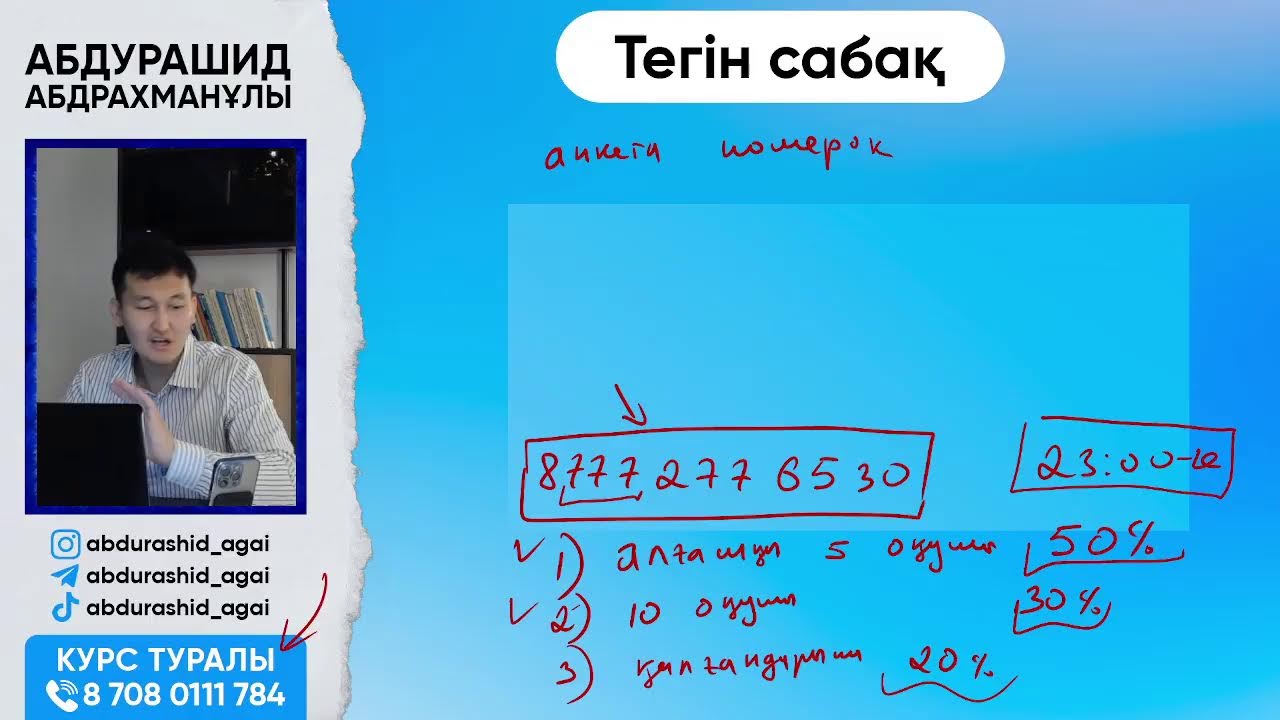 АБДУРАШИД
АБДРАХМАНҰЛЫ
Тегін сабақ
анкета номерок
8 777 277 65 30
23:00-ге
1) алғашқы 5 оқушы 50%
2) 10 оқушы 30%
3) қалғандарыңа 20%
abdurashid_agai
abdurashid_agai
abdurashid_agai
КУРС ТУРАЛЫ
8 708 0111 784